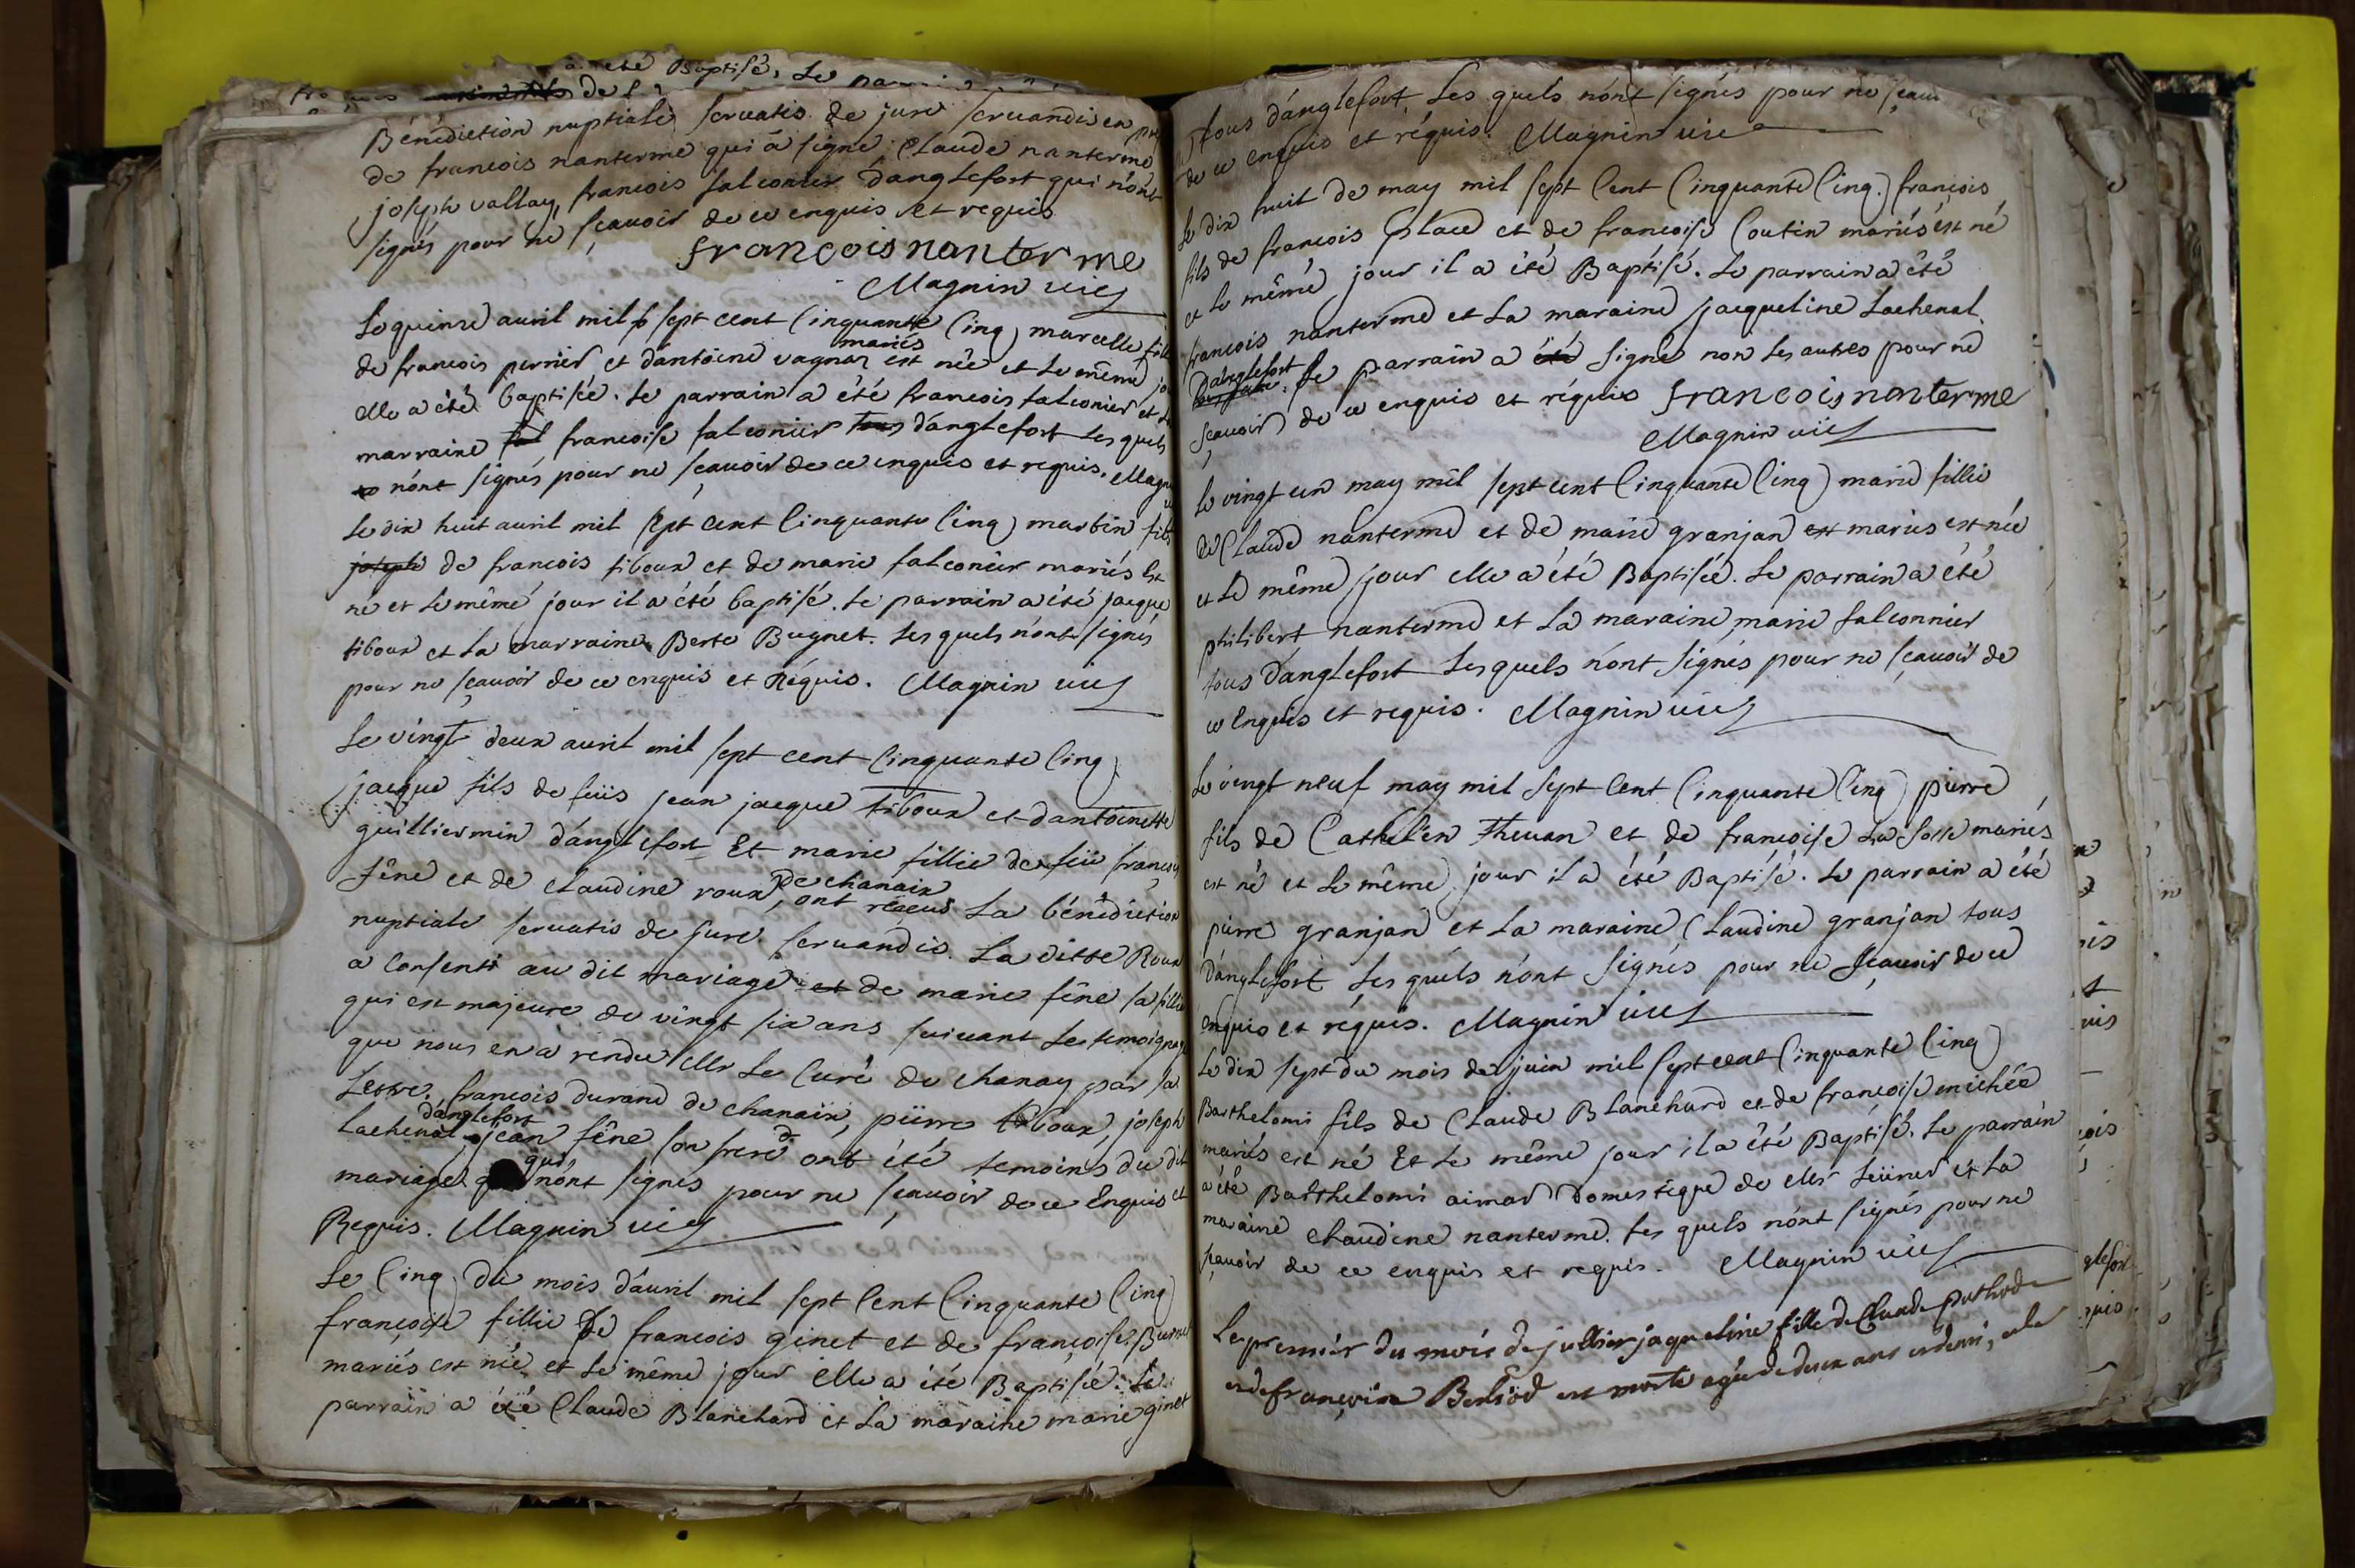 a été Baptisé, Le
Bénédiction nuptiale servatis de jure servandis en
de francois nanterme qui à signé, Claude nanterme
joseph vallay, francois falconier d'anglefort qui n'ont
signés pour ne sçavoir de ce enquis et requis
françois nanterme
Magnin vic
Le quinze avril mil sept cent Cinquante Cinq marcelle fille
mariés
de francois perrier et d'antoine vagnar est née et le même
elle a été baptisée. Le parrain a été francois falconier et
marraine francoise falconier d'anglefort Les quels
n'ont signés pour ne sçavoir de ce enquis et requis. Magn
Le dix huit avril mil sept Cent Cinquante Cinq martin fils
joseph de francois tiboux et de marie falconier mariés Est
né et le même jour il a été baptisé. Le parrain a été jacque
tiboux et La marraine Berte Bugnet. Les quels n'ont signés
pour ne sçavoir de ce enquis et Réquis. Magnin vic
Le vingt deux avril mil sept cent Cinquante Cinq
jacque fils de feüs jean jacque tiboux et d'antoinette
guilliermin d'anglefort Et marie fillie de feü françois
de chanaix
fêne et de claudine roux, ont reçeus La bénédiction
nuptiale servatis de jure servandis. La ditte Roux
a Consenti au dit mariage et de marie fêne sa fillie
qui est majeure de vingt six ans suivant Le temoignage
que nous en a rendu Mr Le Curé de chanay par sa
Lettre. francois durand de chanaix, piërre tiboux, joseph
d'anglefort
Lachenal jean fêne son frere ont été temoins du dit
qui
mariage n'ont signés pour ne sçavoir de ce Enquis et
Requis. Magnin vic
Le Cinq du mois d'avril mil sept Cent Cinquante Cinq
françoise fillie De francois ginet et de françoise
mariés est née et le même jour Elle a été Baptisée. Le
parrain a été Claude Blanchard et La maraine marie ginet
tous d'anglefort. Les quels n'ont signés pour ne sçavoir
de ce enquis et réquis. Magnin vic
Le dix huit de may mil sept Cent Cinquante Cinq. françois
fils de francois Place et de francoise Coutin mariés est né
et le même jour il a été Baptisé. Le parrain a été
francois nanterme et La maraine jacqueline Lachenal
D'anglefort
Le parrain a été signé non Les autres pour ne
sçavoir de ce enquis et réquis françois nanterme
Magnin vic
Le vingt un may mil sept cent Cinquante Cinq marie fillie
de Claude nanterme et de marie granjan est mariés est née
et Le même jour elle a été Baptisée. Le parrain a été
philibert nanterme et La maraine marie falconnier
tous d'anglefort Les quels n'ont signés pour ne sçavoir de
ce Enquis et requis. Magnin vic
Le vingt neuf may mil sept Cent Cinquante Cinq pierre
fils de Cathelin Thevan et de françoise La fosse mariés
est né et Le même jour il a été Baptisé. Le parrain a été
pierre granjan et La maraine Claudine granjan tous
d'anglefort Les quels n'ont signés pour ne sçavoir de ce
enquis et réquis. Magnin vic
Le dix sept du mois de juin mil sept cent Cinquante Cinq
Barthelomi fils de Claude Blanchard et de françoise michée
mariés est né Et Le même jour il a été Baptisé. Le parrain
a été Barthelomi aimar Domestique de Mr et La
maraine Claudine nanterme. Les quels n'ont signés pour ne
sçavoir de ce enquis et requis. Magnin vic
Le premier du mois de juillier jaqueline fille de Claude
et de françoise Berliod est morte agée de deux ans et demi, et le